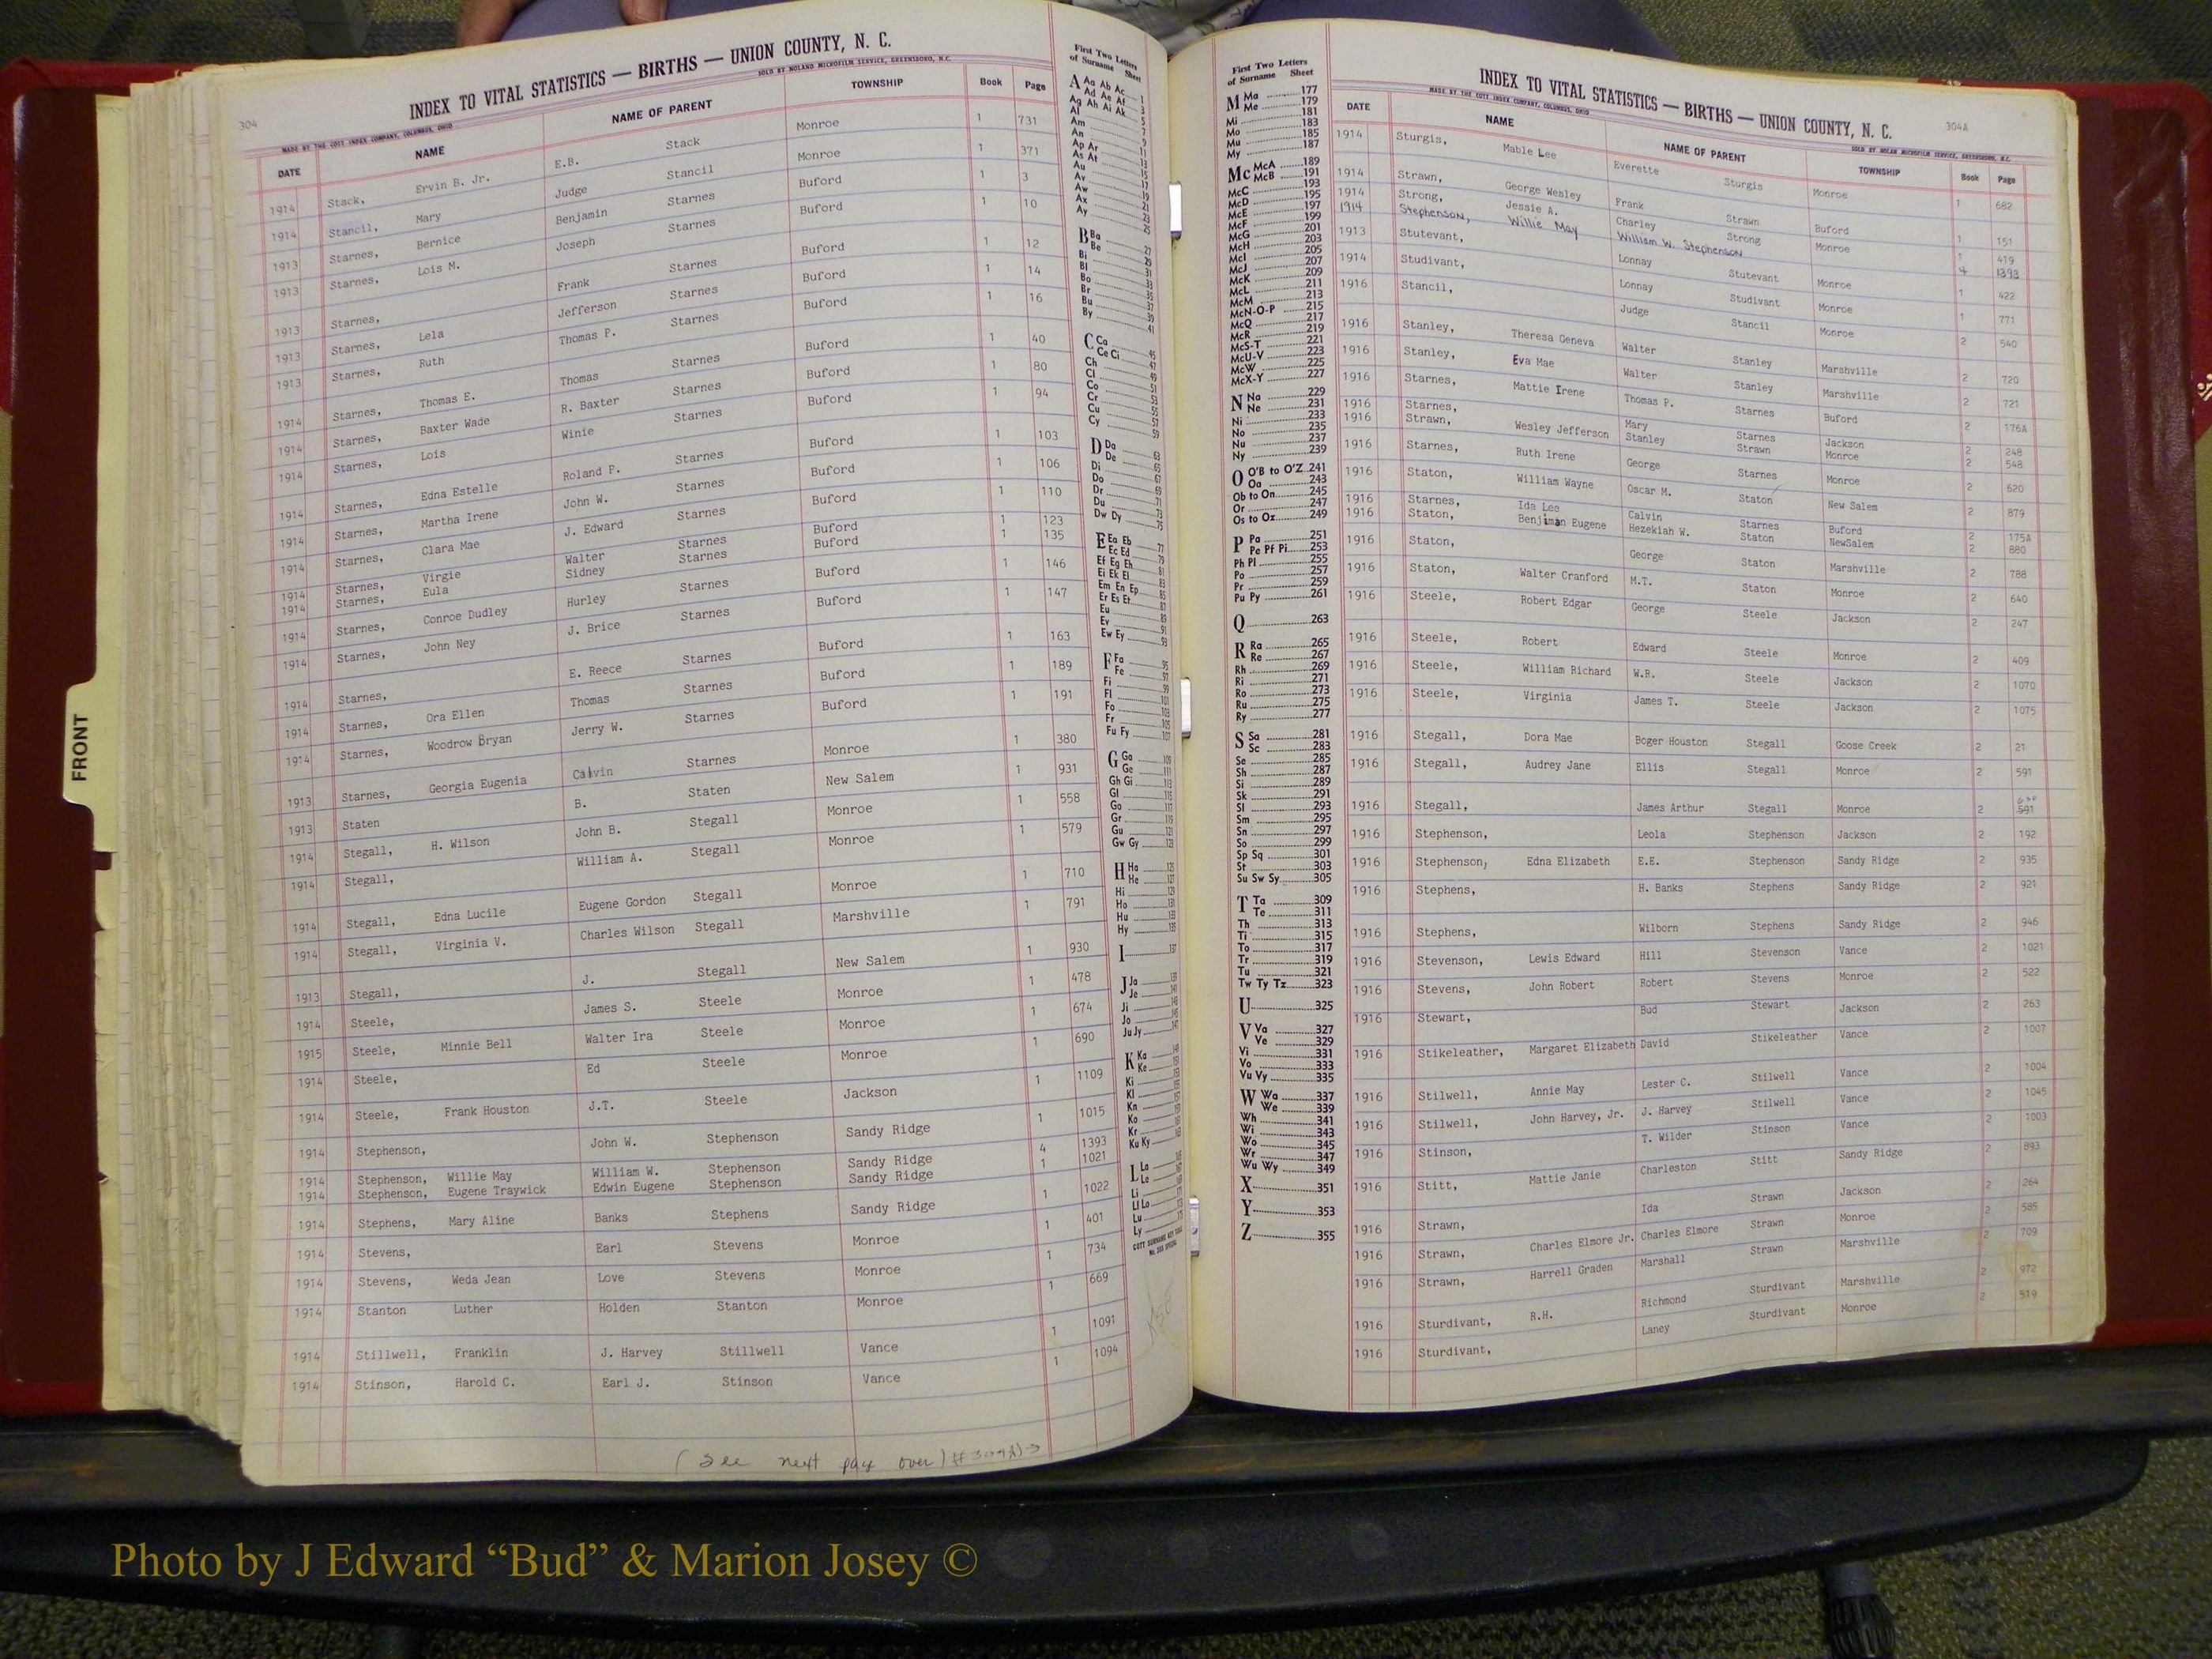 304
INDEX TO VITAL STATISTICS — BIRTHS — UNION COUNTY, N. C.
MADE BY THE COTT INDEX COMPANY, COLUMBUS, OHIO SOLD BY NOLAND MICROFILM SERVICE, GREENSBORO, N.C.
DATE NAME NAME OF PARENT TOWNSHIP Book Page
1914 Stack, Ervin B. Jr. E.B. Stack Monroe 1 731
1914 Stancil, Mary Judge Stancil Monroe 1 371
1913 Starnes, Bernice Benjamin Starnes Buford 1 3
1913 Starnes, Lois M. Joseph Starnes Buford 1 10
1913 Starnes, Frank Starnes Buford 1 12
1913 Starnes, Lela Jefferson Starnes Buford 1 14
1913 Starnes, Ruth Thomas P. Starnes Buford 1 16
1914 Starnes, Thomas E. Thomas Starnes Buford 1 40
1914 Starnes, Baxter Wade R. Baxter Starnes Buford 1 80
1914 Starnes, Lois Winie Starnes Buford 1 94
1914 Starnes, Edna Estelle Roland P. Starnes Buford 1 103
1914 Starnes, Martha Irene John W. Starnes Buford 1 106
1914 Starnes, Clara Mae J. Edward Starnes Buford 1 110
1914 Starnes, Virgie Walter Starnes Buford 1 123
1914 Starnes, Eula Sidney Starnes Buford 1 135
1914 Starnes, Conroe Dudley Hurley Starnes Buford 1 146
1914 Starnes, John Ney J. Brice Starnes Buford 1 147
1914 Starnes, E. Reece Starnes Buford 1 163
1914 Starnes, Ora Ellen Thomas Starnes Buford 1 189
1914 Starnes, Woodrow Bryan Jerry W. Starnes Buford 1 191
1913 Starnes, Georgia Eugenia Calvin Starnes Monroe 1 380
1913 Staten B. Staten New Salem 1 931
1914 Stegall, H. Wilson John B. Stegall Monroe 1 558
1914 Stegall, William A. Stegall Monroe 1 579
1914 Stegall, Edna Lucile Eugene Gordon Stegall Monroe 1 710
1914 Stegall, Virginia V. Charles Wilson Stegall Marshville 1 791
1913 Stegall, J. Stegall New Salem 1 930
1914 Steele, James S. Steele Monroe 1 478
1915 Steele, Minnie Bell Walter Ira Steele Monroe 1 674
1914 Steele, Ed Steele Monroe 1 690
1914 Steele, Frank Houston J.T. Steele Jackson 1 1109
1914 Stephenson, John W. Stephenson Sandy Ridge 1 1015
1914 Stephenson, Willie May William W. Stephenson Sandy Ridge 4 1393
1914 Stephenson, Eugene Traywick Edwin Eugene Stephenson Sandy Ridge 1 1021
1914 Stephens, Mary Aline Banks Stephens Sandy Ridge 1 1022
1914 Stevens, Earl Stevens Monroe 1 401
1914 Stevens, Weda Jean Love Stevens Monroe 1 734
1914 Stanton Luther Holden Stanton Monroe 1 669
1914 Stillwell, Franklin J. Harvey Stillwell Vance 1 1091
1914 Stinson, Harold C. Earl J. Stinson Vance 1 1094
(See next pag over) #304A)→
FRONT
First Two Letters
of Surname Sheet
A Aa Ab Ac 1
Ad Ae Af 3
Ag Ah Ai Ak 5
Al 7
Am 9
An 11
Ap Ar 13
As At 15
Au 17
Av 19
Aw 21
Ax 23
Ay 25
B Ba 27
Be 29
Bi 31
Bl 33
Bo 35
Br 37
Bu 39
By 41
C Ca 45
Ce Ci 47
Ch 49
Cl 51
Co 53
Cr 55
Cu 57
Cy 59
D Da 63
De 65
Di 67
Do 69
Dr 71
Du 73
Dw Dy 75
E Ea Eb 77
Ec Ed 79
Ef Eg Eh 81
Ei Ek El 83
Em En Ep 85
Er Es Et 87
Eu 89
Ev 91
Ew Ey 93
F Fa 95
Fe 97
Fi 99
Fl 101
Fo 103
Fr 105
Fu Fy 107
G Ga 109
Ge 111
Gh Gi 113
Gl 115
Go 117
Gr 119
Gu 121
Gw Gy 123
H Ha 125
He 127
Hi 129
Ho 131
Hu 133
Hy 135
I 137
J Ja 139
Je 141
Ji 143
Jo 145
Ju Jy 147
K Ka
Ke
Ki
Kl
Kn
Ko
Kr
Ku Ky
L La
Le
Li
Ll Lo
Lu
Ly
First Two Letters
of Surname Sheet
M Ma 177
Me 179
Mi 181
Mo 183
Mu 185
My 187
Mc McA 189
McB 191
McC 193
McD 195
McE 197
McF 199
McG 201
McH 203
McI 205
McJ 207
McK 209
McL 211
McM 213
McN-O-P 215
McQ 217
McR 219
McS-T 221
McU-V 223
McW 225
McX-Y 227
N Na 229
Ne 231
Ni 233
No 235
Nu 237
Ny 239
O O'B to O'Z 241
Oa 243
Ob to On 245
Or 247
Os to Oz 249
P Pa 251
Pe Pf Pi 253
Ph Pl 255
Po 257
Pr 259
Pu Py 261
Q 263
R Ra 265
Re 267
Rh 269
Ri 271
Ro 273
Ru 275
Ry 277
S Sa 281
Sc 283
Se 285
Sh 287
Si 289
Sk 291
Sl 293
Sm 295
Sn 297
So 299
Sp Sq 301
St 303
Su Sw Sy 305
T Ta 309
Te 311
Th 313
Ti 315
To 317
Tr 319
Tu 321
Tw Ty Tz 323
U 325
V Va 327
Ve 329
Vi 331
Vo 333
Vu Vy 335
W Wa 337
We 339
Wh 341
Wi 343
Wo 345
Wr 347
Wu Wy 349
X 351
Y 353
Z 355
INDEX TO VITAL STATISTICS — BIRTHS — UNION COUNTY, N. C. 304A
MADE BY THE COTT INDEX COMPANY, COLUMBUS, OHIO SOLD BY NOLAN MICROFILM SERVICE, GREENSBORO, N.C.
DATE NAME NAME OF PARENT TOWNSHIP Book Page
1914 Sturgis, Mable Lee Everette Sturgis Monroe 1 682
1914 Strawn, George Wesley Frank Strawn Buford 1 151
1914 Strong, Jessie A. Charley Strong Monroe 1 419
1914 Stephenson, Willie May William W. Stephenson 4 1393
1913 Stutevant, Lonnay Stutevant Monroe 1 422
1914 Studivant, Lonnay Studivant Monroe 1 771
1916 Stancil, Judge Stancil Monroe 2 540
1916 Stanley, Theresa Geneva Walter Stanley Marshville 2 720
1916 Stanley, Eva Mae Walter Stanley Marshville 2 721
1916 Starnes, Mattie Irene Thomas P. Starnes Buford 2 176A
1916 Starnes, Mary Starnes Jackson 2 248
1916 Strawn, Wesley Jefferson Stanley Strawn Monroe 2 548
1916 Starnes, Ruth Irene George Starnes Monroe 2 620
1916 Staton, William Wayne Oscar M. Staton New Salem 2 879
1916 Starnes, Ida Lee Calvin Starnes Buford 2 175A
1916 Staton, Benjiman Eugene Hezekiah W. Staton NewSalem 2 880
1916 Staton, George Staton Marshville 2 788
1916 Staton, Walter Cranford M.T. Staton Monroe 2 640
1916 Steele, Robert Edgar George Steele Jackson 2 247
1916 Steele, Robert Edward Steele Monroe 2 409
1916 Steele, William Richard W.R. Steele Jackson 2 1070
1916 Steele, Virginia James T. Steele Jackson 2 1075
1916 Stegall, Dora Mae Boger Houston Stegall Goose Creek 2 21
1916 Stegall, Audrey Jane Ellis Stegall Monroe 2 591
1916 Stegall, James Arthur Stegall Monroe 2 591
1916 Stephenson, Leola Stephenson Jackson 2 192
1916 Stephenson, Edna Elizabeth E.E. Stephenson Sandy Ridge 2 935
1916 Stephens, H. Banks Stephens Sandy Ridge 2 921
1916 Stephens, Wilborn Stephens Sandy Ridge 2 946
1916 Stevenson, Lewis Edward Hill Stevenson Vance 2 1021
1916 Stevens, John Robert Robert Stevens Monroe 2 522
1916 Stewart, Bud Stewart Jackson 2 263
1916 Stikeleather, Margaret Elizabeth David Stikeleather Vance 2 1007
1916 Stilwell, Annie May Lester C. Stilwell Vance 2 1004
1916 Stilwell, John Harvey, Jr. J. Harvey Stilwell Vance 2 1045
1916 Stinson, T. Wilder Stinson Vance 2 1003
1916 Stitt, Mattie Janie Charleston Stitt Sandy Ridge 2 893
1916 Strawn, Ida Strawn Jackson 2 264
1916 Strawn, Charles Elmore Jr. Charles Elmore Strawn Monroe 2 585
1916 Strawn, Harrell Graden Marshall Strawn Marshville 2 709
1916 Sturdivant, R.H. Richmond Sturdivant Marshville 2 972
1916 Sturdivant, Laney Sturdivant Monroe 2 519
Photo by J Edward “Bud” & Marion Josey ©